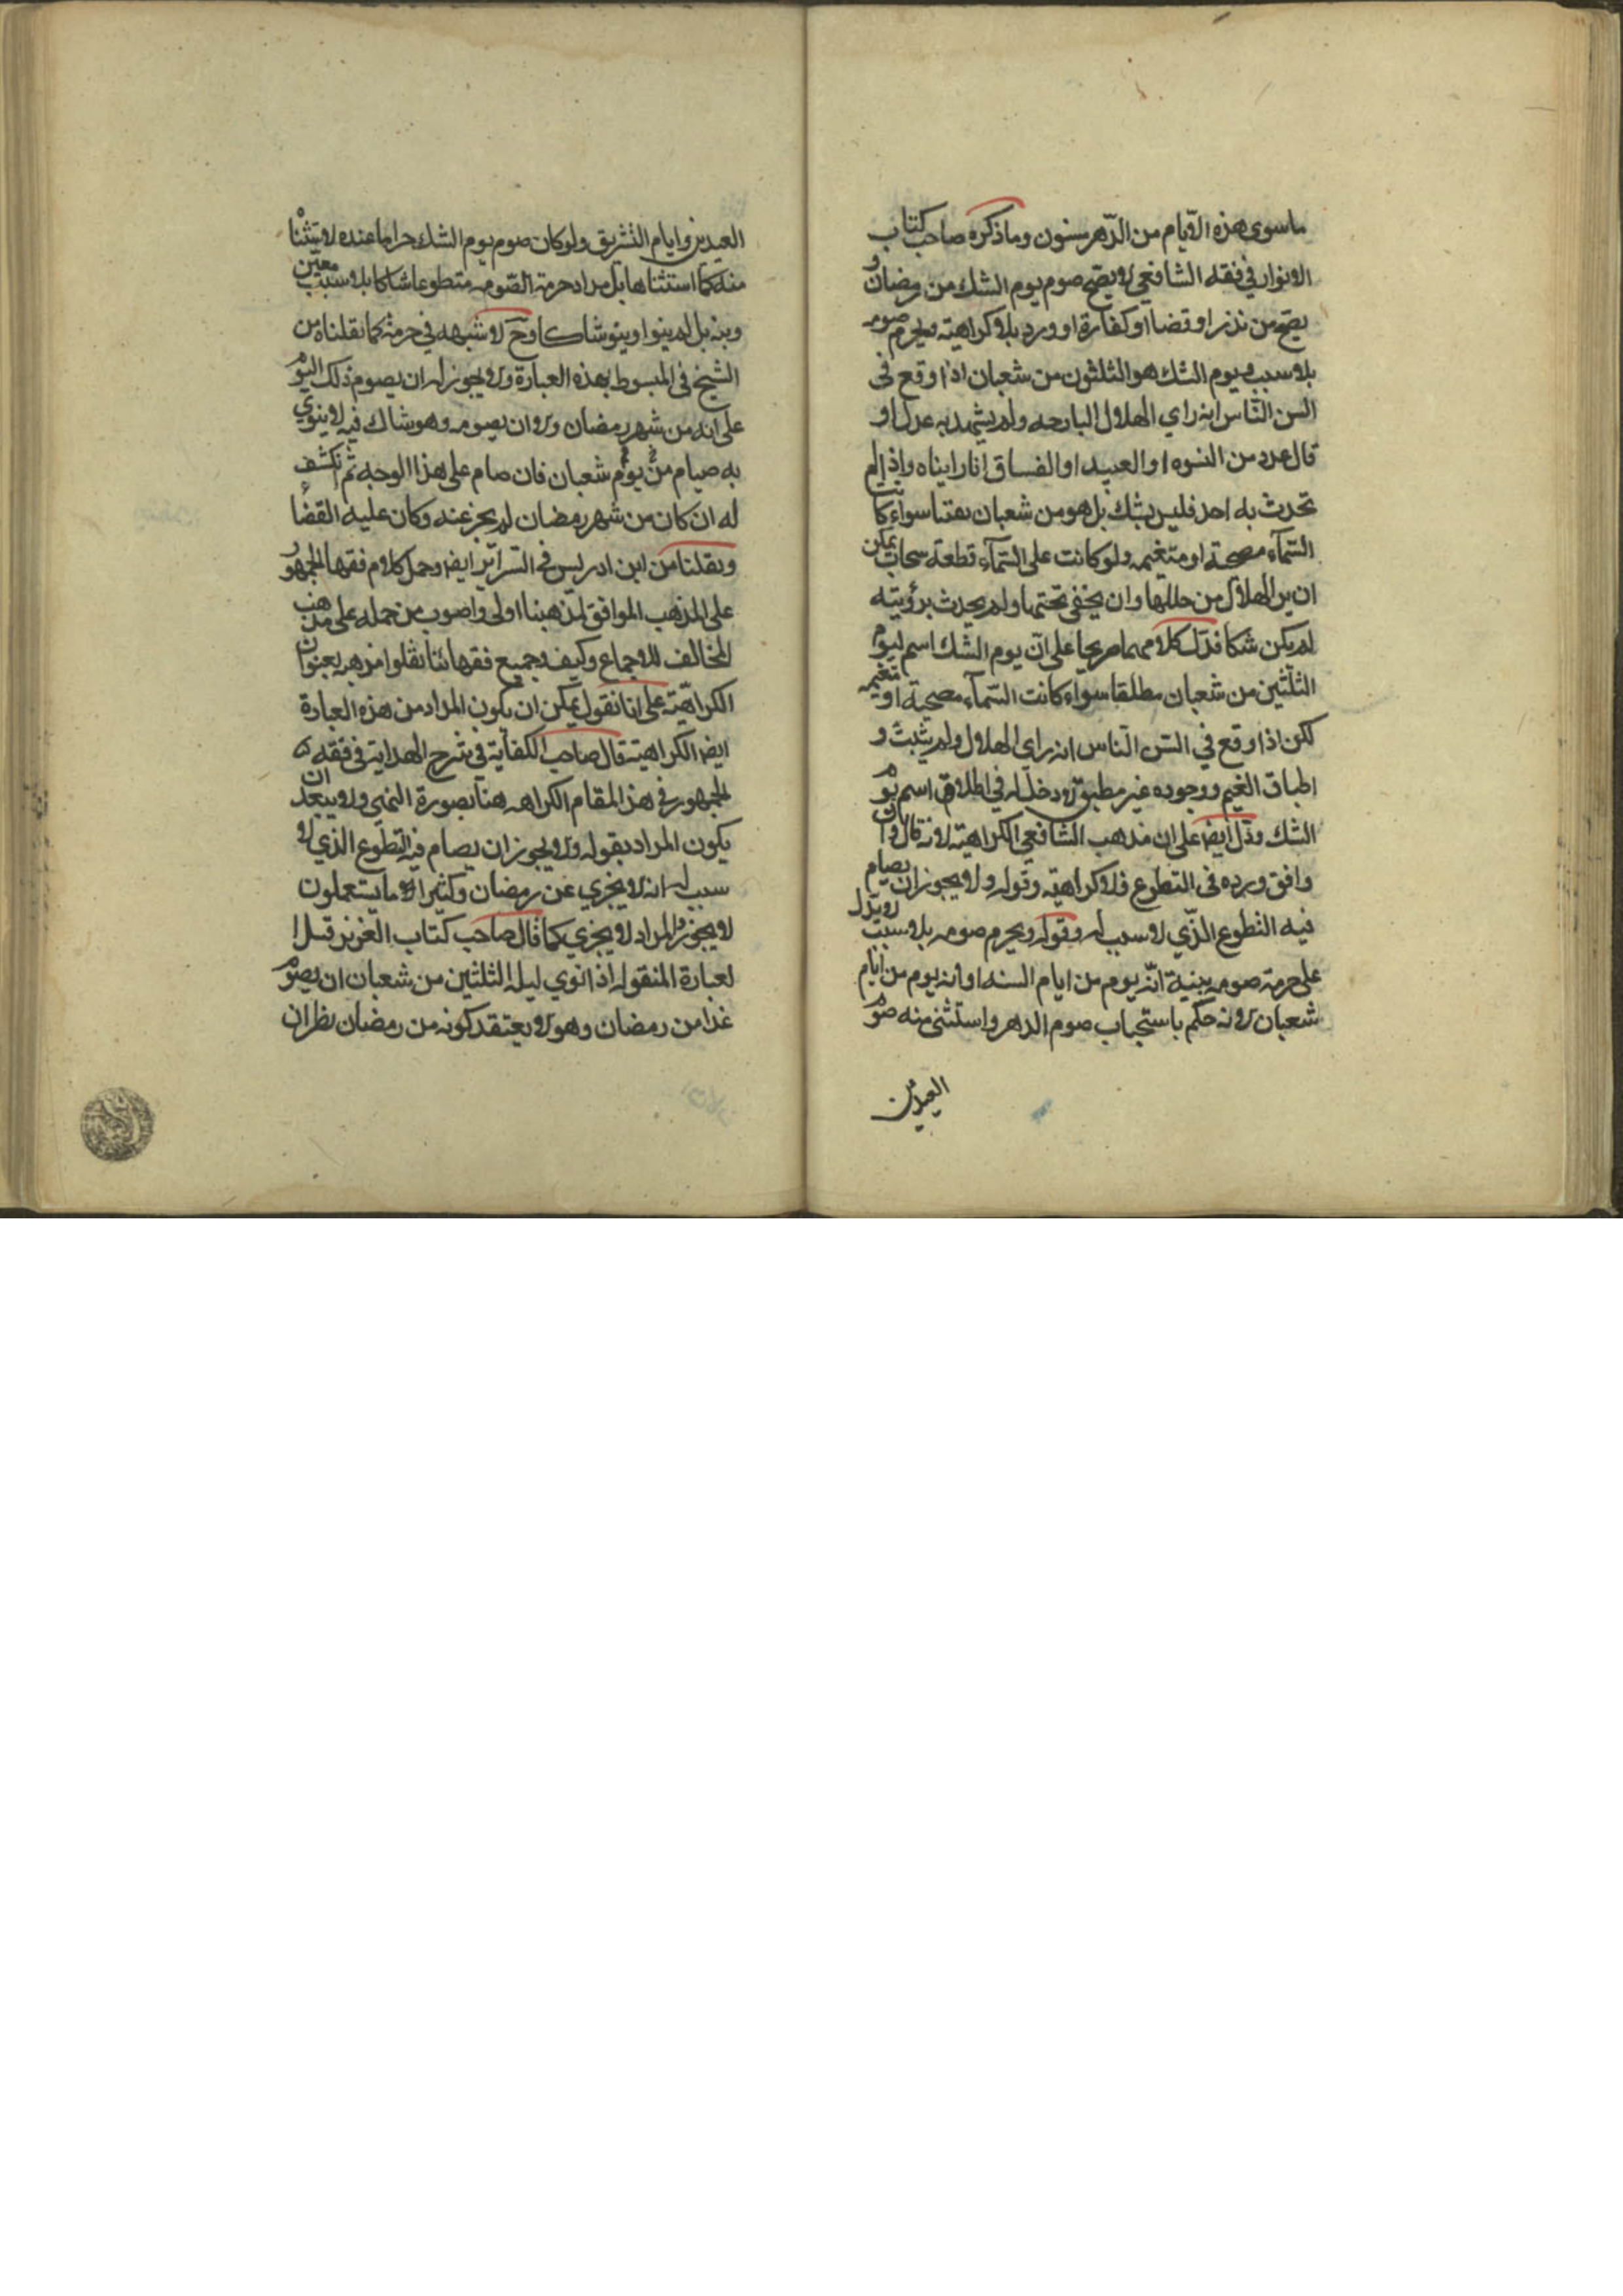 ما سوى هذه الايام من الدهر مسنون وما ذكره صاحب كتاب
الانوار في فقه الشافعي لا يصح صوم يوم الشك من رمضان و
يصح من نذر او قضا او كفارة او ورد بلا كراهية ويحرم صومه
بلا سبب ويوم الشك هو الثلثون من شعبان اذا وقع في
السن الناس انه راي الهلال البارحه ولم يشهد به عدل او
قال عدد من النسوه او العبيد او الفساق انا رايناه واذا لم
تحدث به احد فليس بشك بل هو من شعبان سواء كانت
السمآء مصحية او متغيمه ولو كانت على السمآء قطعة سحاب يمكن
ان ير الهلال من خللها وان يخفى تحتها ولم يحدث برؤيته
لم يكن شكا فدل كلامهما صريحا على ان يوم الشك اسم ليوم
الثلثين من شعبان مطلقا سواء كانت السمآء مصحية او متغيمه
لكن اذا وقع في السن الناس انه راى الهلال ولم يثبت و
اطباق الغيم ووجوده غير مطبق لا دخل له في اطلاق اسم يوم
الشك ودل ايضا على ان مذهب الشافعي الكراهية لانه قال وان
وافق ورده في التطوع فلا كراهية وقوله ولا يجوز ان يصام
فيه التطوع الذي لا سبب له وقوله ويحرم صومه بلا سبب لا يدل
على حرمة صومه بنية انه يوم من ايام السنه او انه يوم من ايام
شعبان لانه حكم باستحباب صوم الدهر واستثنى منه صوم
العيدين
العيدين وايام التشريق ولو كان صوم يوم الشك حراما عنده لاستثنا
منه كما استثناها بل مراده حرمة الصومه متطوعا شاكا بلا سبب معين
وبنه بل لم ينوا وينو شاكا وح لا شبهه في حرمته كما نقلناه من
الشيخ في المبسوط بهذه العبارة ولا يجوز له ان يصوم ذلك اليوم
على انه من شهر رمضان ولا ان يصومه وهو شاك فيه لا ينوي
به صيام من يوم شعبان فان صام على هذا الوجه ثم انكشف
له ان كان من شهر رمضان لم يجز عنه وكان عليه القضا
ونقلنا من ابن ادريس في السرائر ايضا وحمل كلام فقها الجمهور
على المذهب الموافق لمذهبنا اولى واصوب من حمله على مذهب
المخالف للاجماع وكيف وجميع فقهائنا نقلوا مذهبهم بعنوان
الكراهية على انا نقول يمكن ان يكون المراد من هذه العبارة
ايضا الكراهية قال صاحب الكفاية في شرح الهداية في فقه
الجمهور في هذا المقام الكراهه هنا بصورة النهي ولا يبعد ان
يكون المراد بقوله ولا يجوز ان يصام فيه التطوع الذي لا
سبب له انه لا يجزي عن رمضان وكثيرا ما يستعملون
لا يجوز والمراد لا يجزي كما قال صاحب كتاب العزيز قبل ا
لعبارة المنقوله اذا نوي ليلة الثلثين من شعبان ان يصوم
غدا من رمضان وهو لا يعتقد كونه من رمضان نظر ان